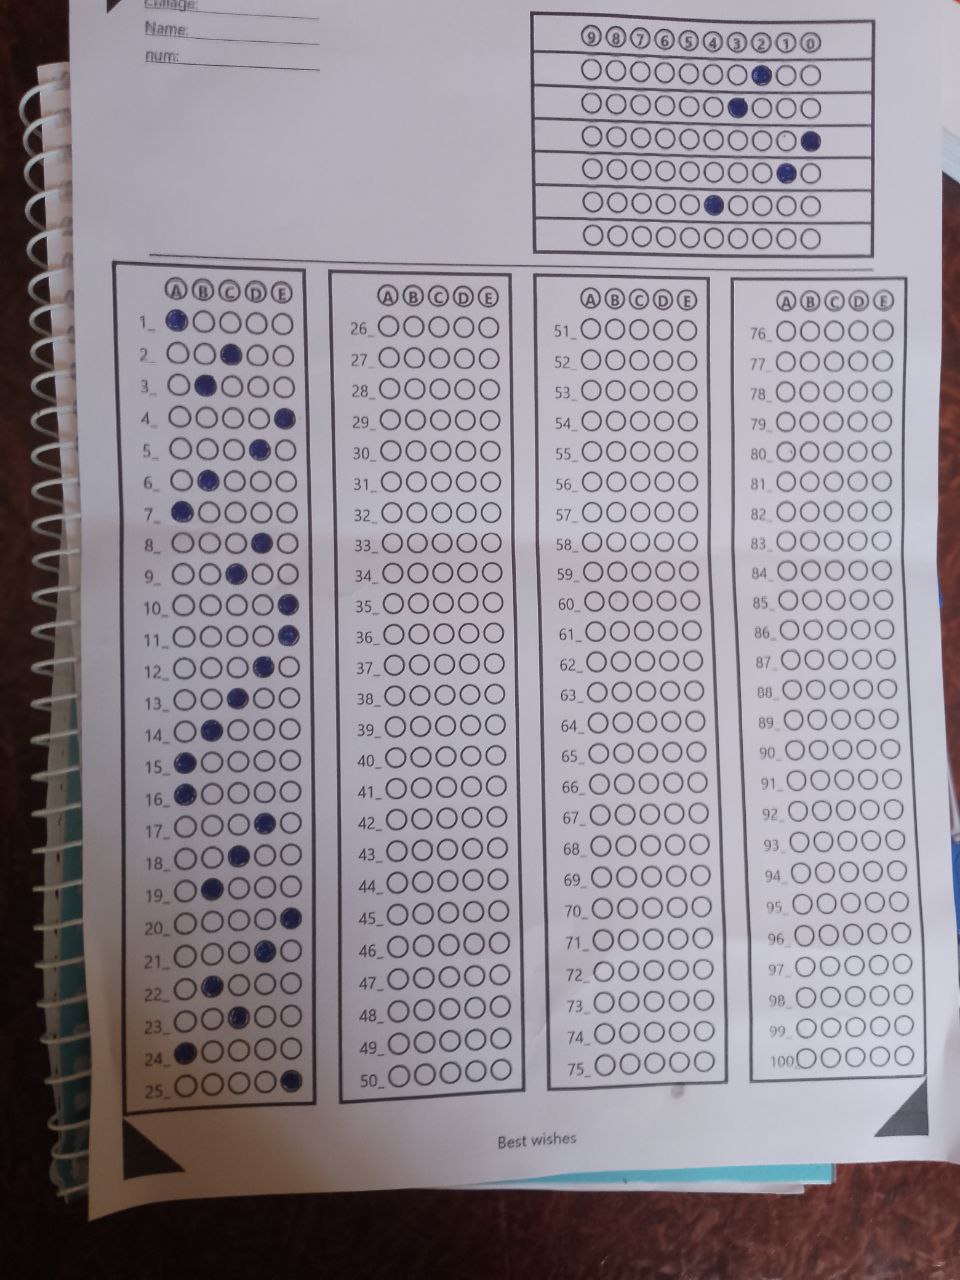 Name:
num:
9 8 7 6 5 4 3 2 1 0
A B C D E
1_
2_
3_
4_
5_
6_
7_
8_
9_
10_
11_
12_
13_
14_
15_
16_
17_
18_
19_
20_
21_
22_
23_
24_
25_
A B C D E
26_
27_
28_
29_
30_
31_
32_
33_
34_
35_
36_
37_
38_
39_
40_
41_
42_
43_
44_
45_
46_
47_
48_
49_
50_
A B C D E
51_
52_
53_
54_
55_
56_
57_
58_
59_
60_
61_
62_
63_
64_
65_
66_
67_
68_
69_
70_
71_
72_
73_
74_
75_
A B C D E
76_
77_
78_
79_
80_
81_
82_
83_
84_
85_
86_
87_
88_
89_
90_
91_
92_
93_
94_
95_
96_
97_
98_
99_
100_
Best wishes